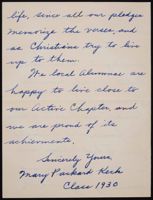 life, since all our pledges
memorize the verses, and
as Christians try to live
up to them.
We local Alumnae are
happy to live close to
our Active Chapter, and
we are proud of its
achievements.
Sincerely Yours
Mary Packard Keck
Class 1930